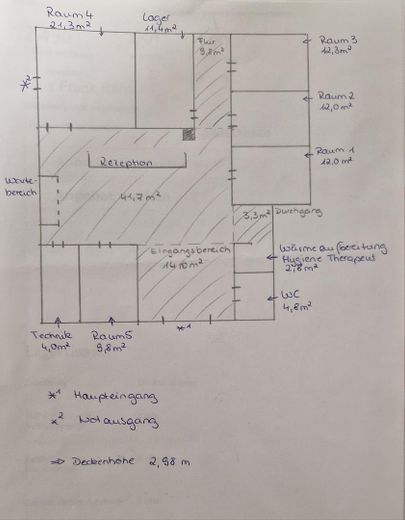 Raum 4
21,3m²
Lager
11,4m²
Flur
9,8m²
Raum 3
12,3m²
Raum 2
12,0m²
Raum 1
12,0m²
*²
Rezeption
Warte-
bereich
41,7m²
3,3m²
Durchgang
Eingangsbereich
14,0m²
Wärmeaufbereitung
Hygiene Therapeut
2,8m²
WC
4,8m²
Technik
4,0m²
Raum 5
9,8m²
*1
*1 Haupteingang
*2 Notausgang
⇒ Deckenhöhe 2,98 m